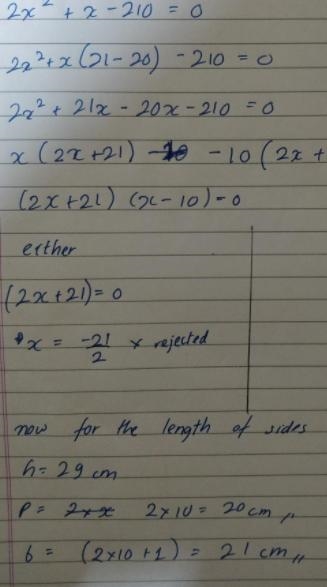 2x² + x - 210 = 0
2x² + x (21 - 20) - 210 = 0
2x² + 21x - 20x - 210 = 0
x (2x + 21) - 10 (2x +
(2x + 21) (x - 10) = 0
either
(2x + 21) = 0
x = -21/2 × rejected
now for the length of sides
h = 29 cm
P = 2×10 = 20 cm,,
b = (2×10 + 1) = 21 cm,,